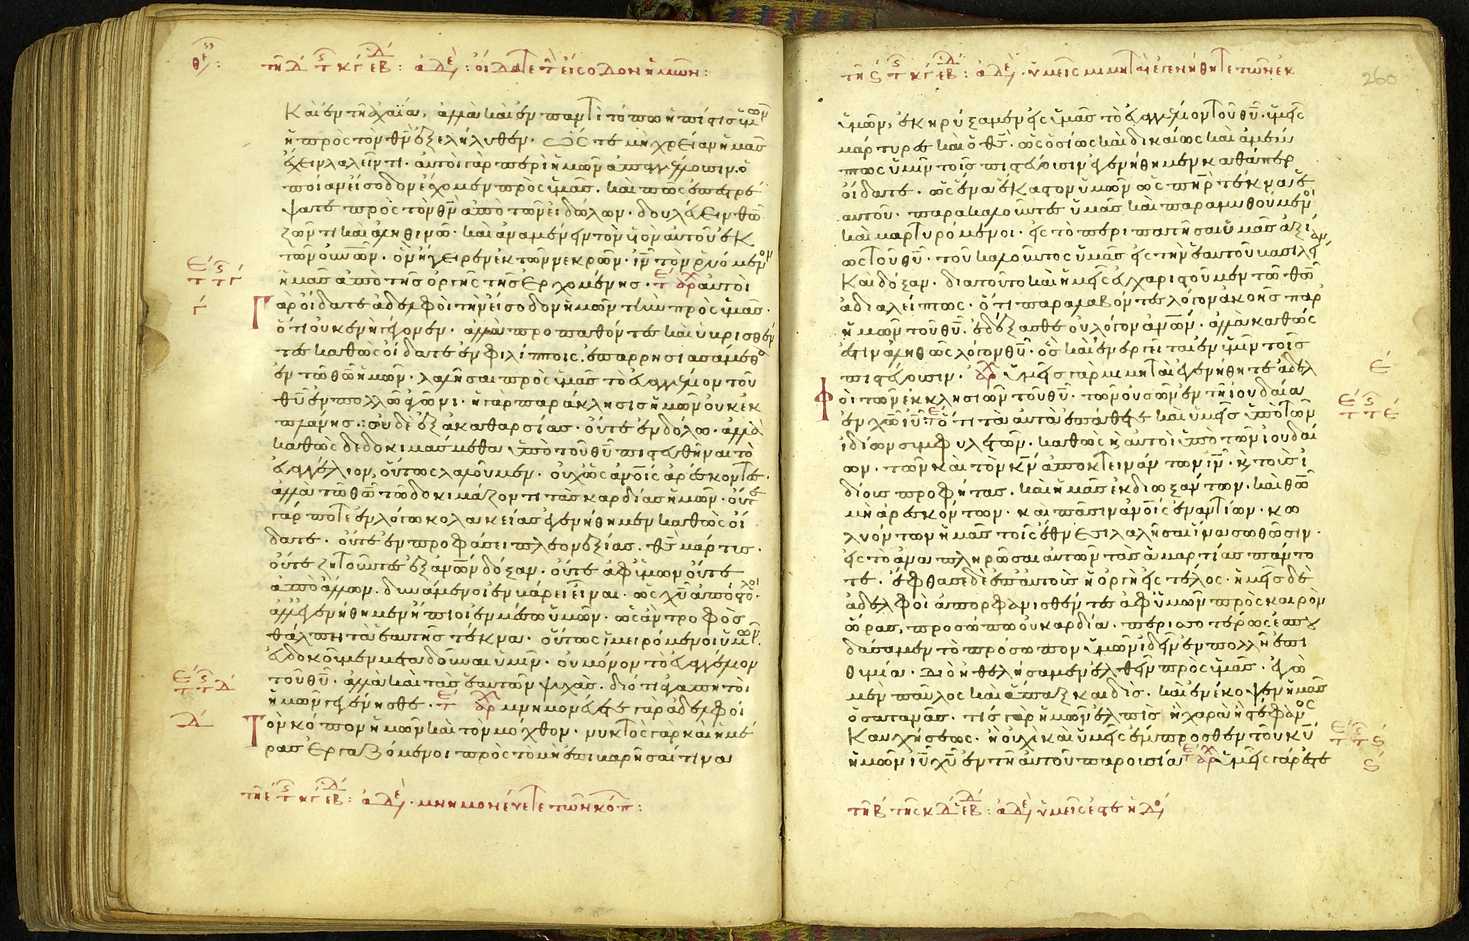 τῇ δ τ κγ ἑβδ : ἀδε : οἴδατε τ εἴσοδον ἡμῶν :
Καὶ ἐν τῆ ἀχαΐα, ἀλλὰ καὶ ἐν παντὶ τόπω ἡ πίστις ὑμῶν
ἡ πρὸς τὸν θν ἐξελήλυθεν. ὥστε μὴ χρείαν ἡμᾶς
ἔχειν λαλεῖν τι. αὐτοὶ γὰρ περὶ ἡμῶν ἀπαγγέλλουσιν. ὁ
ποίαν εἴσοδον ἔσχομεν πρὸς ὑμᾶς. καὶ πῶς ἐπεστρέ
ψατε πρὸς τὸν θν ἀπὸ τῶν εἰδώλων. δουλεύειν θω
ζῶντι καὶ ἀληθινῶ. καὶ ἀναμένειν τὸν υἱὸν αὐτοῦ ἐκ
τῶν οὐνων. ὃν ἤγειρεν ἐκ τῶν νεκρῶν. ιν τὸν ῥυόμενον
ἡμᾶς ἀπὸ τῆς ὀργῆς τῆς ἐρχομένης. αὐτοὶ
Γὰρ οἴδατε ἀδελφοὶ τὴν εἴσοδον ἡμῶν τὴν πρὸς ὑμᾶς.
ὅτι οὐ κενὴ γέγονεν. ἀλλὰ προπαθόντες καὶ ὑβρισθέν
τες καθὼς οἴδατε ἐν φιλίπποις. ἐπαρρησιασάμεθα
ἐν τῶ θω ἡμῶν. λαλῆσαι πρὸς ὑμᾶς τὸ εὐαγγέλιον τοῦ
θυ ἐν πολλῶ ἀγῶνι. ἡ γὰρ παράκλησις ἡμῶν οὐκ ἐκ
πλάνης. οὐδὲ ἐξ ἀκαθαρσίας. οὔτε ἐν δόλω. ἀλλὰ
καθὼς δεδοκιμάσμεθα ὑπὸ τοῦ θυ πιστευθῆναι τὸ
εὐαγγέλιον, οὕτως λαλοῦμεν. οὐχ ὡς ἀνοις ἀρέσκοντες.
ἀλλὰ τῶ θω τῶ δοκιμάζοντι τὰς καρδίας ἡμῶν. οὔτε
γάρ ποτε ἐν λόγω κολακείας ἐγενήθημεν καθὼς οἴ
δατε. οὔτε ἐν προφάσει πλεονεξίας. θς μάρτυς.
οὔτε ζητοῦντες ἐξ ἀνων δόξαν. οὔτε ἀφ' ὑμῶν οὔτε
ἀπὸ ἄλλων. δυνάμενοι ἐν βάρει εἶναι. ὡς χυ ἀπόστολοι.
ἀλλ' ἐγενήθημεν ἤπιοι ἐν μέσω ὑμῶν. ὡς ἂν τροφὸς
θάλπῃ τὰ ἑαυτῆς τέκνα. οὕτως ἱμειρόμενοι ὑμῶν.
εὐδοκοῦμεν μεταδοῦναι ὑμῖν. οὐ μόνον τὸ εὐαγγέλιον
τοῦ θυ. ἀλλὰ καὶ τὰς ἑαυτῶν ψυχάς. διότι ἀγαπητοὶ
ἡμῶν γεγένησθε. μνημονεύετε γὰρ ἀδελφοὶ
Τὸν κόπον ἡμῶν καὶ τὸν μόχθον. νυκτὸς γὰρ καὶ ἡμέ
ρας ἐργαζόμενοι πρὸς τὸ μὴ ἐπιβαρῆσαί τινα
τῇ ε τ κγ ἑβδ : ἀδε · μνημονεύετε τῶν κόπ :
τῇ ς τ κγ ἑβδ : ἀδε · ὑμεῖς μιμηταὶ ἐγενήθητε τῶν ἐκ
260
ὑμῶν, ἐκηρύξαμεν εἰς ὑμᾶς τὸ εὐαγγέλιον τοῦ θυ. ὑμεῖς
μάρτυρες καὶ ὁ θς. ὡς ὁσίως καὶ δικαίως καὶ ἀμέμ
πτως ὑμῖν τοῖς πιστεύουσιν ἐγενήθημεν καθάπερ
οἴδατε. ὡς ἕνα ἕκαστον ὑμῶν ὡς πηρ τέκνα ἑ
αυτοῦ. παρακαλοῦντες ὑμᾶς καὶ παραμυθούμενοι
καὶ μαρτυρόμενοι. εἰς τὸ περιπατῆσαι ὑμᾶς ἀξί
ως τοῦ θυ. τοῦ καλοῦντος ὑμᾶς εἰς τὴν ἑαυτοῦ βασιλείαν
Καὶ δόξαν. διὰ τοῦτο καὶ ἡμεῖς εὐχαριστοῦμεν τῶ θω
ἀδιαλείπτως. ὅτι παραλαβόντες λόγον ἀκοῆς παρ'
ἡμῶν τοῦ θυ. ἐδέξασθε οὐ λόγον ἀνων. ἀλλὰ καθώς
ἐστιν ἀληθῶς λόγον θυ. ὃς καὶ ἐνεργεῖται ἐν ὑμῖν τοῖς
πιστεύουσιν. ὑμεῖς γὰρ μιμηταὶ ἐγενήθητε ἀδελ
φοὶ τῶν ἐκκλησιῶν τοῦ θυ. τῶν οὐσῶν ἐν τῇ ἰουδαία
ἐν χω ιυ. ὅτι τὰ αὐτὰ ἐπάθετε καὶ ὑμεῖς ὑπὸ τῶν
ἰδίων συμφυλετῶν. καθὼς κ αὐτοὶ ὑπὸ τῶν ἰουδαί
ων. τῶν καὶ τὸν κν ἀποκτεινάντων ιν. κ τοὺς ἰ
δίους προφήτας. καὶ ἡμᾶς ἐκδιωξάντων. καὶ θω
μὴ ἀρεσκόντων. καὶ πᾶσιν ἀνοις ἐναντίων. κω
λυόντων ἡμᾶς τοῖς ἔθνεσι λαλῆσαι ἵνα σωθῶσιν.
εἰς τὸ ἀναπληρῶσαι αὐτῶν τὰς ἁμαρτίας πάντο
τε. ἔφθασε δὲ ἐπ' αὐτοὺς ἡ ὀργὴ εἰς τέλος. ἡμεῖς δὲ
ἀδελφοὶ ἀπορφανισθέντες ἀφ' ὑμῶν πρὸς καιρὸν
ὥρας, προσώπω οὐ καρδία. περισσοτέρως ἐσπου
δάσαμεν τὸ πρόσωπον ὑμῶν ἰδεῖν ἐν πολλῇ ἐπι
θυμία. Διὸ ἠθελήσαμεν ἐλθεῖν πρὸς ὑμᾶς. ἐγὼ
μὲν παῦλος καὶ ἅπαξ καὶ δίς. καὶ ἐνέκοψεν ἡμᾶς
ὁ σατανᾶς. τίς γὰρ ἡμῶν ἐλπὶς ἢ χαρὰ ἢ στέφανος
Καυχήσεως. ἢ οὐχὶ καὶ ὑμεῖς ἔμπροσθεν τοῦ κυ
ἡμῶν ιυ χυ ἐν τῇ αὐτοῦ παρουσία ὑμεῖς γάρ ἐστε
τῇ β τῆς κδ ἑβδ : ἀδε ὑμεῖς ἐστε ἡ δό